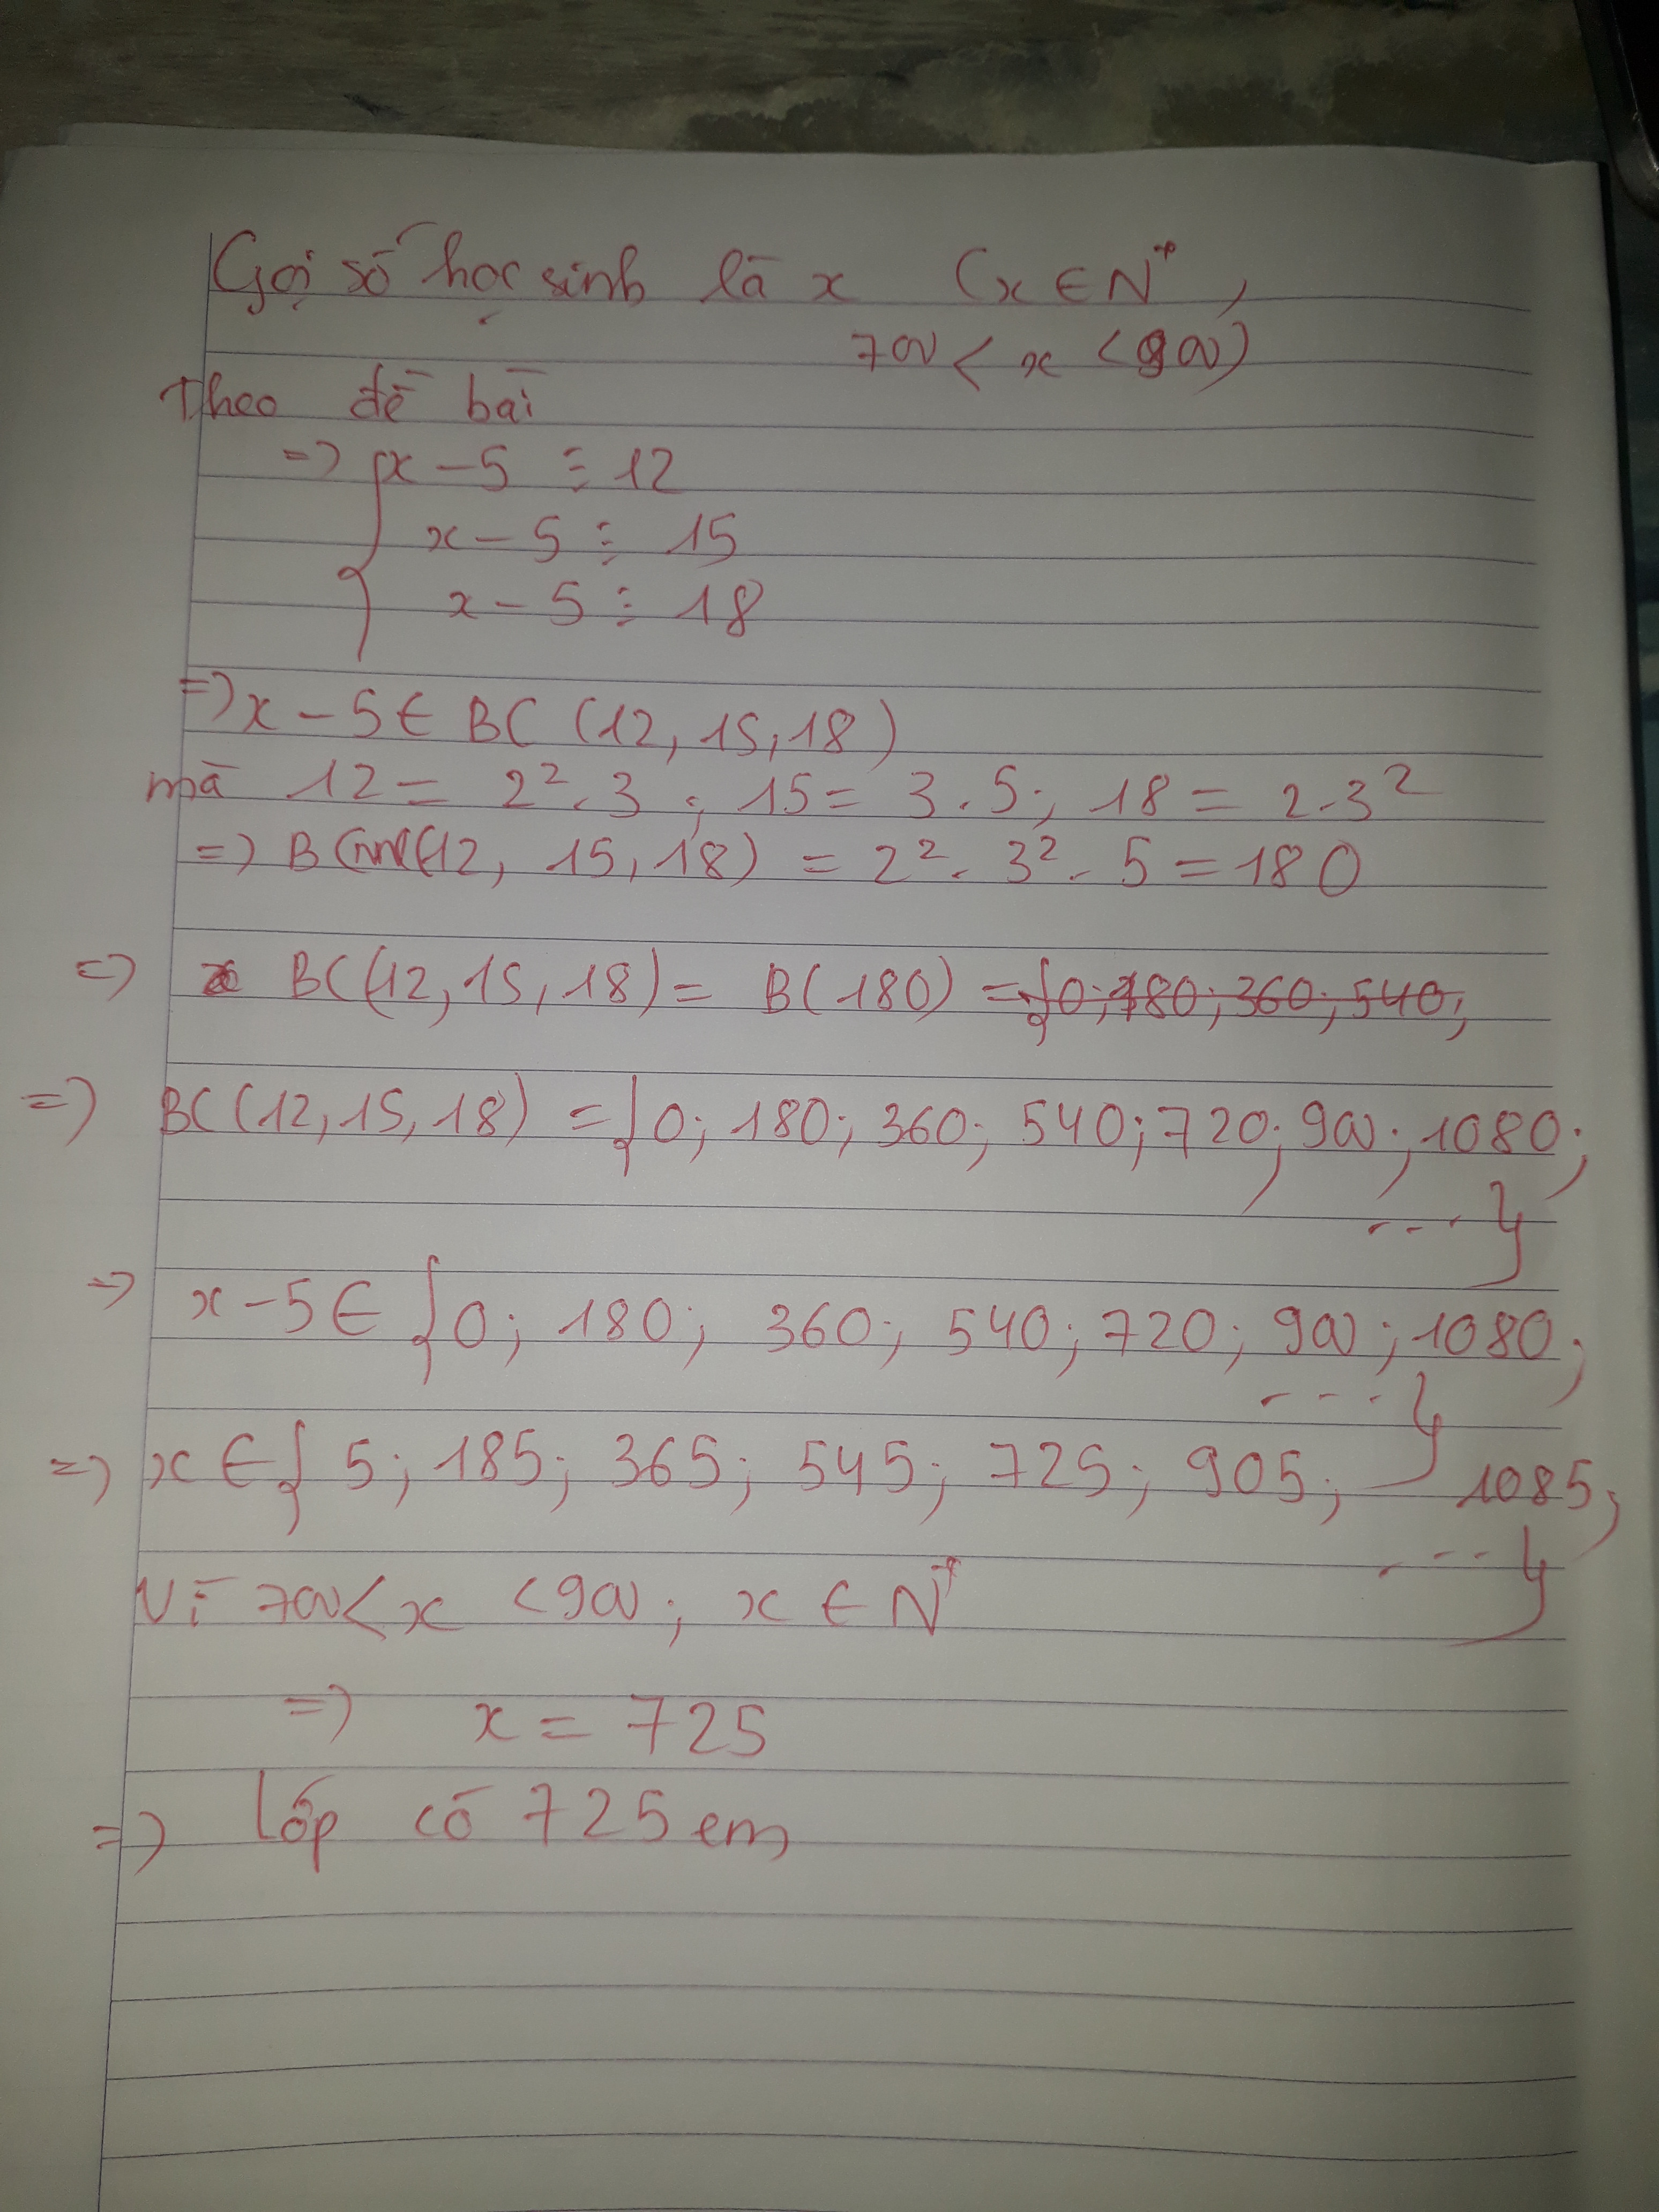 Gọi số học sinh là x (x ∈ N*,
700 < x < 900)
Theo đề bài
=> { x - 5 ⋮ 12
x - 5 ⋮ 15
x - 5 ⋮ 18
=> x - 5 ∈ BC (12, 15, 18)
mà 12 = 2² . 3 ; 15 = 3 . 5 ; 18 = 2 . 3²
=> BCNN(12, 15, 18) = 2² . 3² . 5 = 180
=> BC(12, 15, 18) = B(180) = {0; 180; 360; 540;
=> BC(12, 15, 18) = {0; 180; 360; 540; 720; 900; 1080;
...}
=> x - 5 ∈ {0; 180; 360; 540; 720; 900; 1080;
...}
=> x ∈ {5; 185; 365; 545; 725; 905; 1085;
...}
Vì 700 < x < 900 ; x ∈ N*
=> x = 725
=> Lớp có 725 em